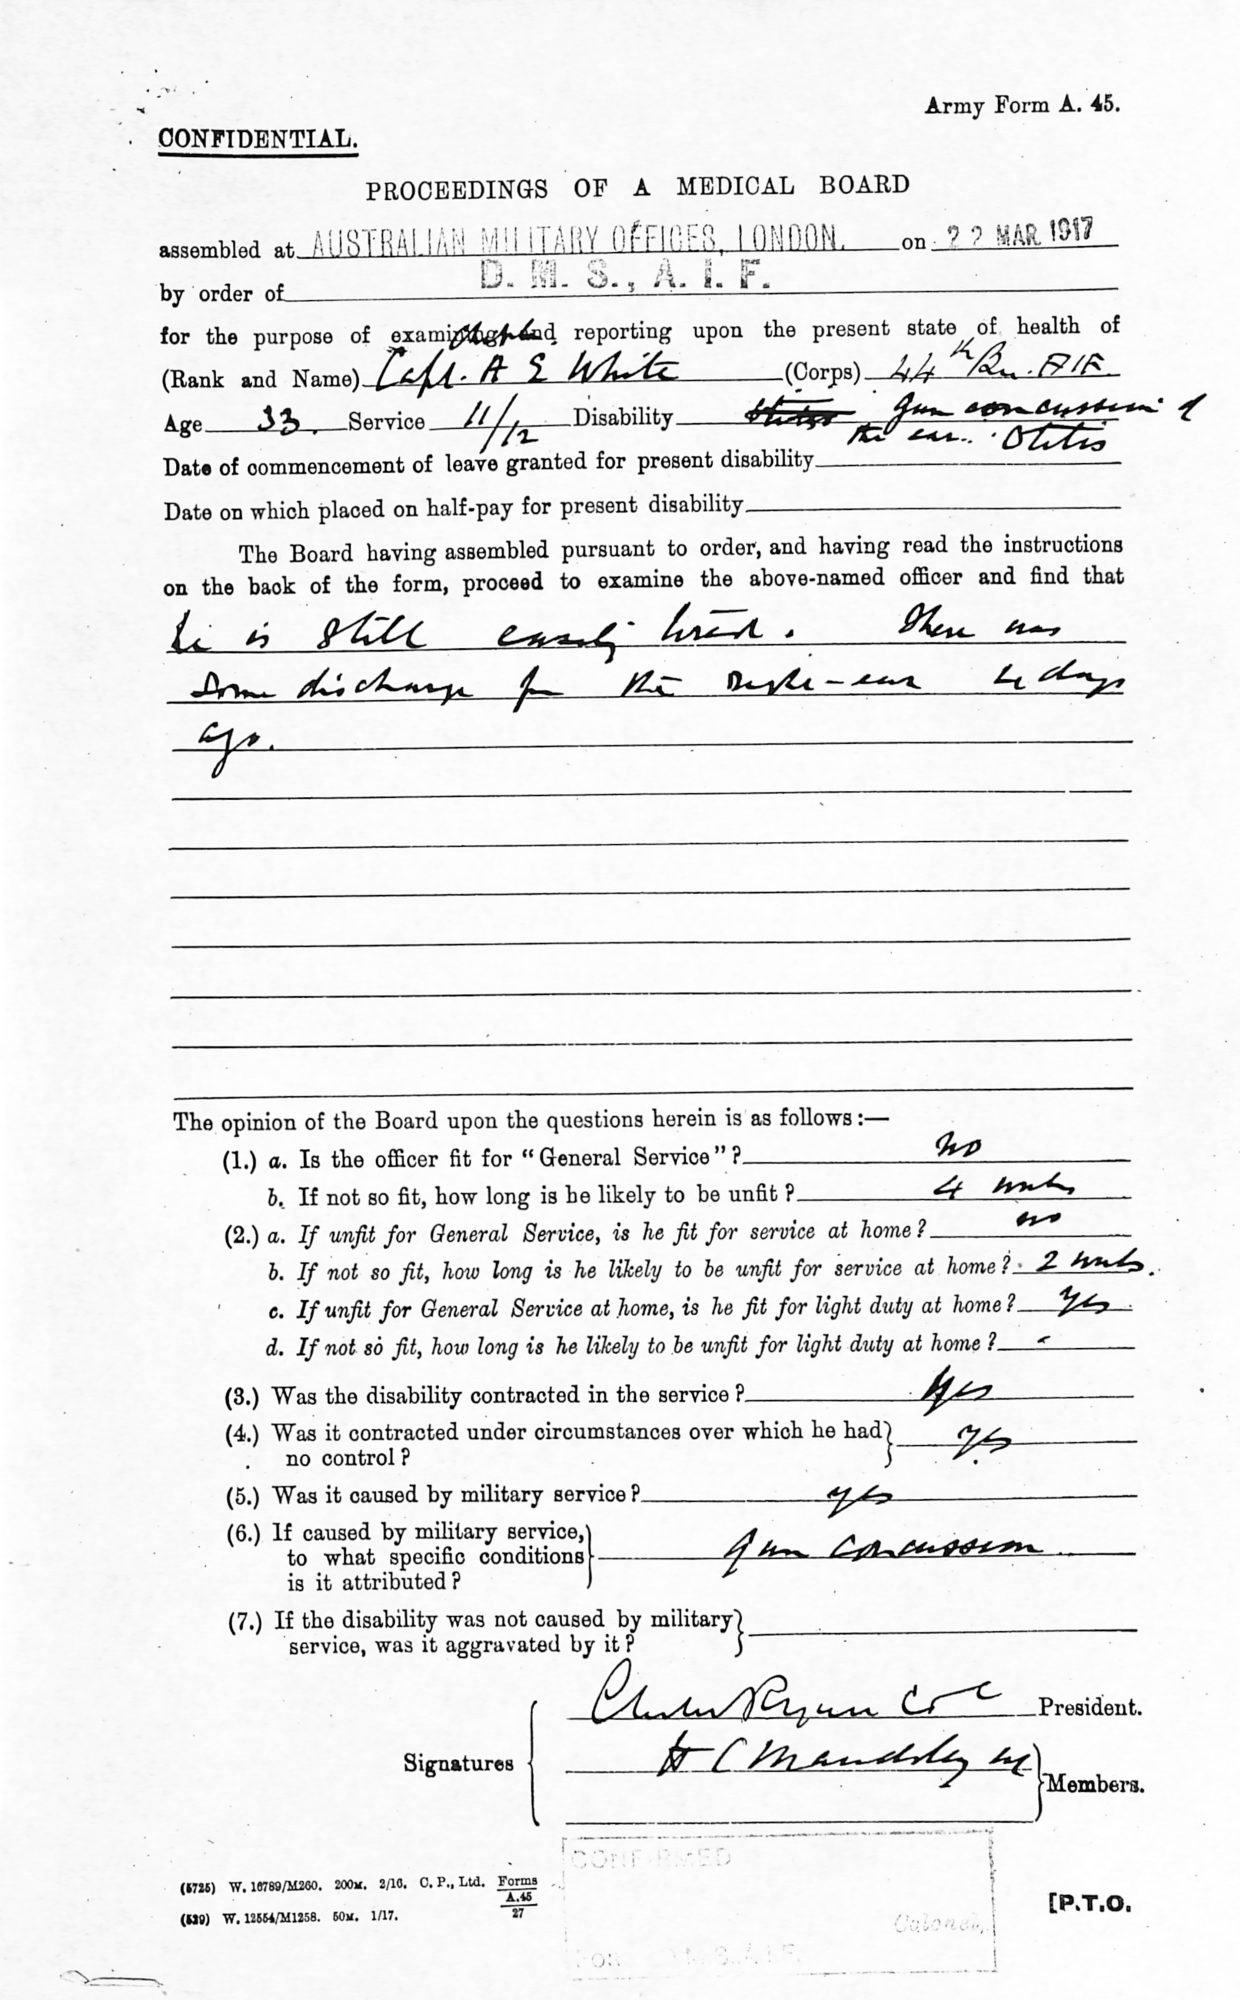 Army Form A. 45.
CONFIDENTIAL.
PROCEEDINGS OF A MEDICAL BOARD
assembled at AUSTRALIAN MILITARY OFFICES, LONDON. on 22 MAR 1917
by order of D. M. S., A. I. F.
for the purpose of examining and reporting upon the present state of health of
(Rank and Name) Capt. A E White (Corps) 44th Bn. AIF
Age 33. Service 11/12 Disability gun concussion of
the ear. Otitis
Date of commencement of leave granted for present disability
Date on which placed on half-pay for present disability
The Board having assembled pursuant to order, and having read the instructions
on the back of the form, proceed to examine the above-named officer and find that
he is still easily tired. There was
some discharge fm the right-ear 4 days
ago.
The opinion of the Board upon the questions herein is as follows:—
(1.) a. Is the officer fit for "General Service"? no
b. If not so fit, how long is he likely to be unfit? 4 weeks
(2.) a. If unfit for General Service, is he fit for service at home? no
b. If not so fit, how long is he likely to be unfit for service at home? 2 weeks.
c. If unfit for General Service at home, is he fit for light duty at home? yes
d. If not so fit, how long is he likely to be unfit for light duty at home? -
(3.) Was the disability contracted in the service? yes
(4.) Was it contracted under circumstances over which he had
no control? yes
(5.) Was it caused by military service? yes
(6.) If caused by military service,
to what specific conditions gun concussion
is it attributed?
(7.) If the disability was not caused by military
service, was it aggravated by it?
Ryan Col President.
Signatures H C Maudsley Members.
CONFIRMED
(5725) W. 16789/M260. 200M. 2/16. C. P., Ltd. Forms A.45 27
(539) W. 12554/M1258. 50M. 1/17.
[P.T.O.
Colonel,
For D.M.S. A.I.F.